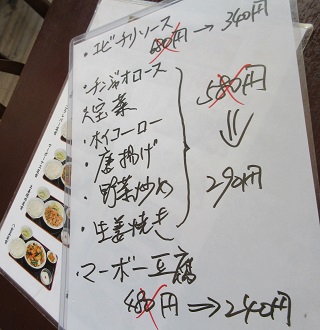 ・エビチリソース
680円→340円
・チンジャオロース
八宝菜
・ホイコーロー
・唐揚げ
・野菜炒め
・生姜焼き
580円
⇓
290円
・マーボー豆腐
480円⇒240円